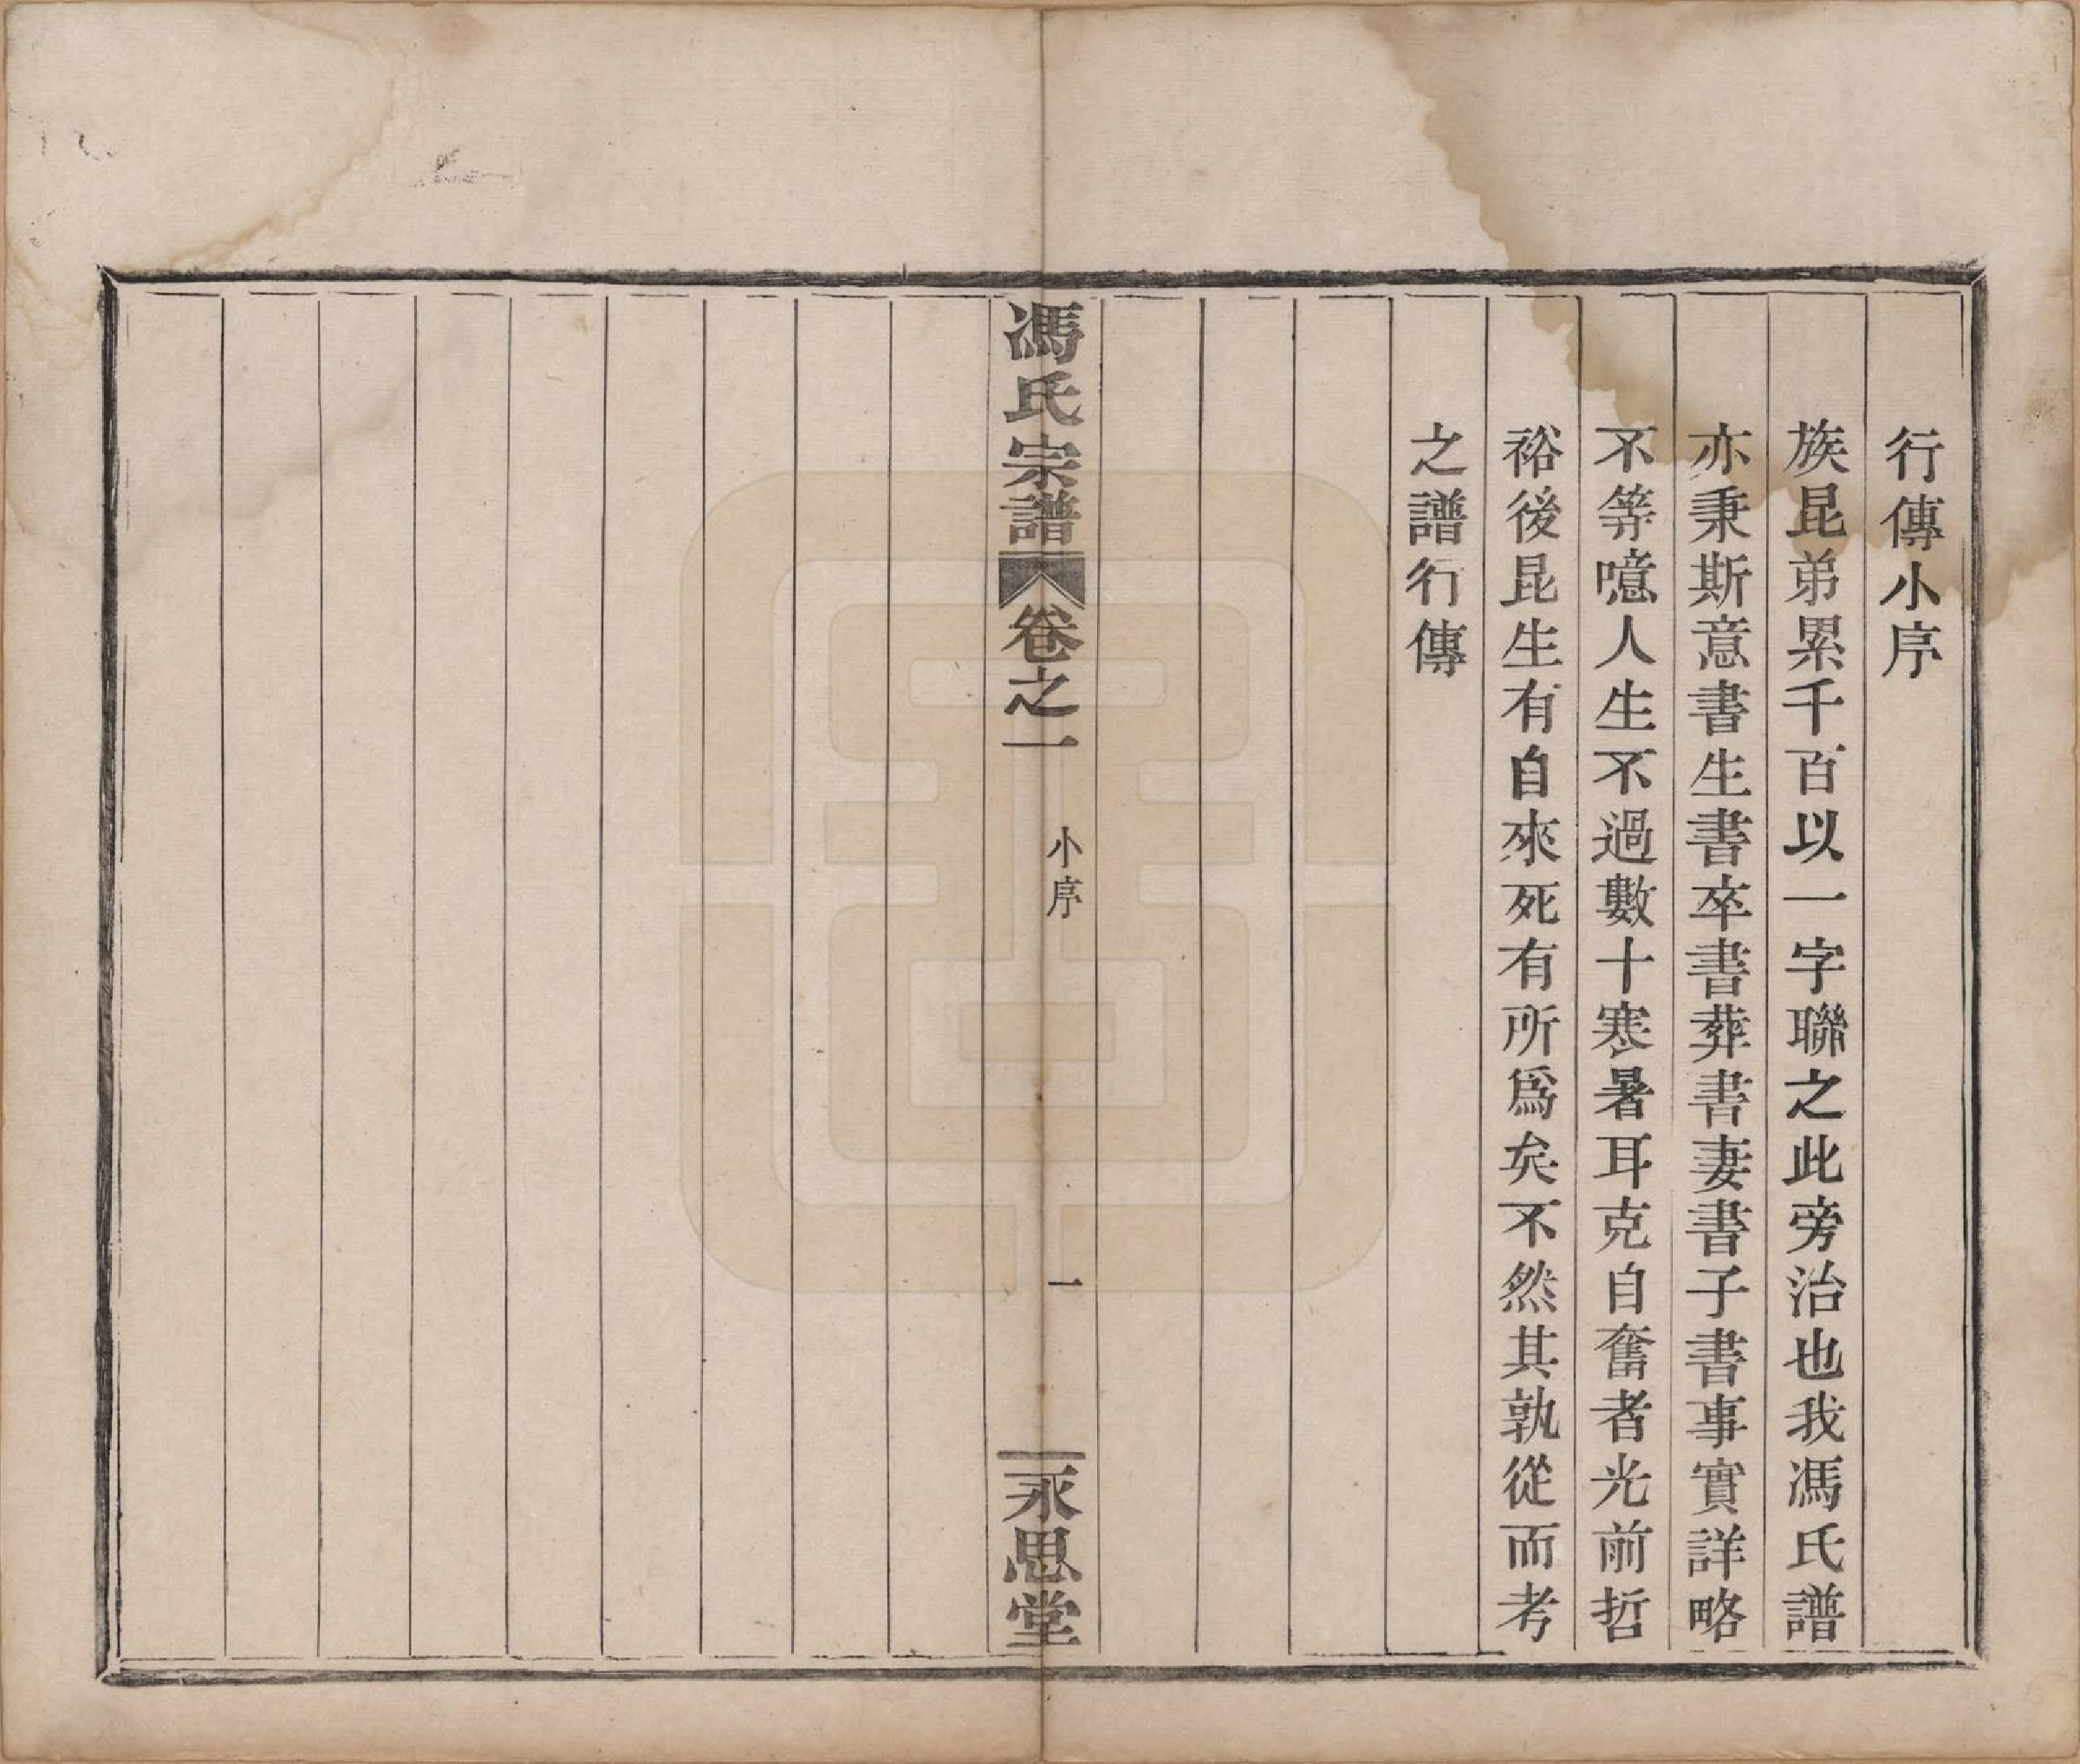 行傳小序
族昆弟累千百以一字聯之此旁治也我馮氏譜
亦秉斯意書生書卒書葬書妻書子書事實詳略
不等噫人生不過數十寒暑耳克自奮者光前哲
裕後昆生有自來死有所爲矣不然其孰從而考
之譜行傳
馮氏宗譜 卷之一 小序 一 永思堂